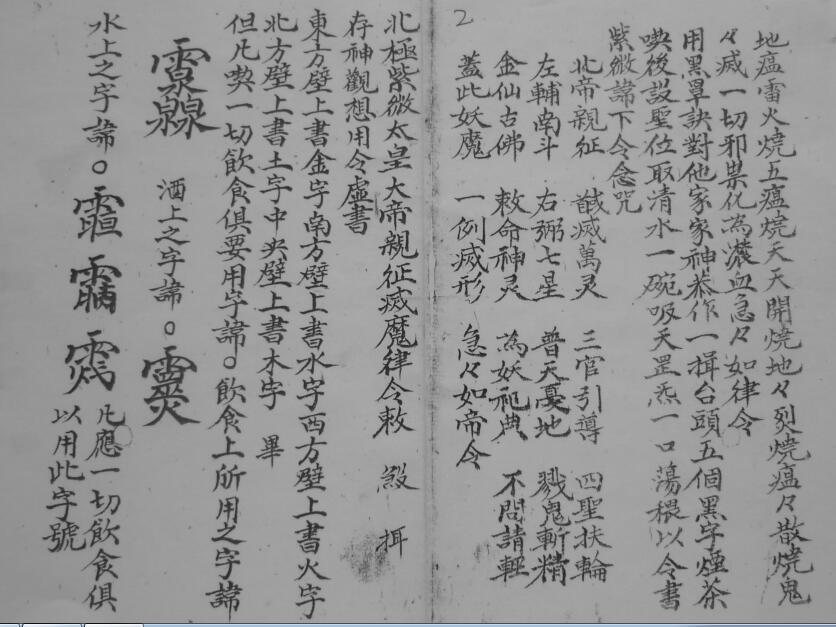 2
地瘟雷火燒五瘟燒天天開燒地々裂燒瘟々散燒鬼
々滅一切邪祟化為濃血急々如律令
用黑罩訣對他家家神恭作一揖台頭五個黑字煙茶
喫後設聖位取清水一碗吸天罡炁一口蕩穢以令書
紫微諱下令念咒
北帝親征 馘滅萬灵 三官引導 四聖扶輪
左輔南斗 右弼七星 普天憂地 戮鬼斬精
金仙古佛 敕命神灵 為妖祀典 不問請輕
蓋此妖魔 一例滅形 急々如帝令
北極紫微太皇大帝親征滅魔律令敕
存神觀想用令虛書
東方壁上書金字南方壁上書水字西方壁上書火字
北方壁上書土字中央壁上書木字 畢
但凡喫一切飲食俱要用字諱。飲食上所用之字諱
酒上之字諱。
水上之字諱。
凡應一切飲食俱
以用此字號